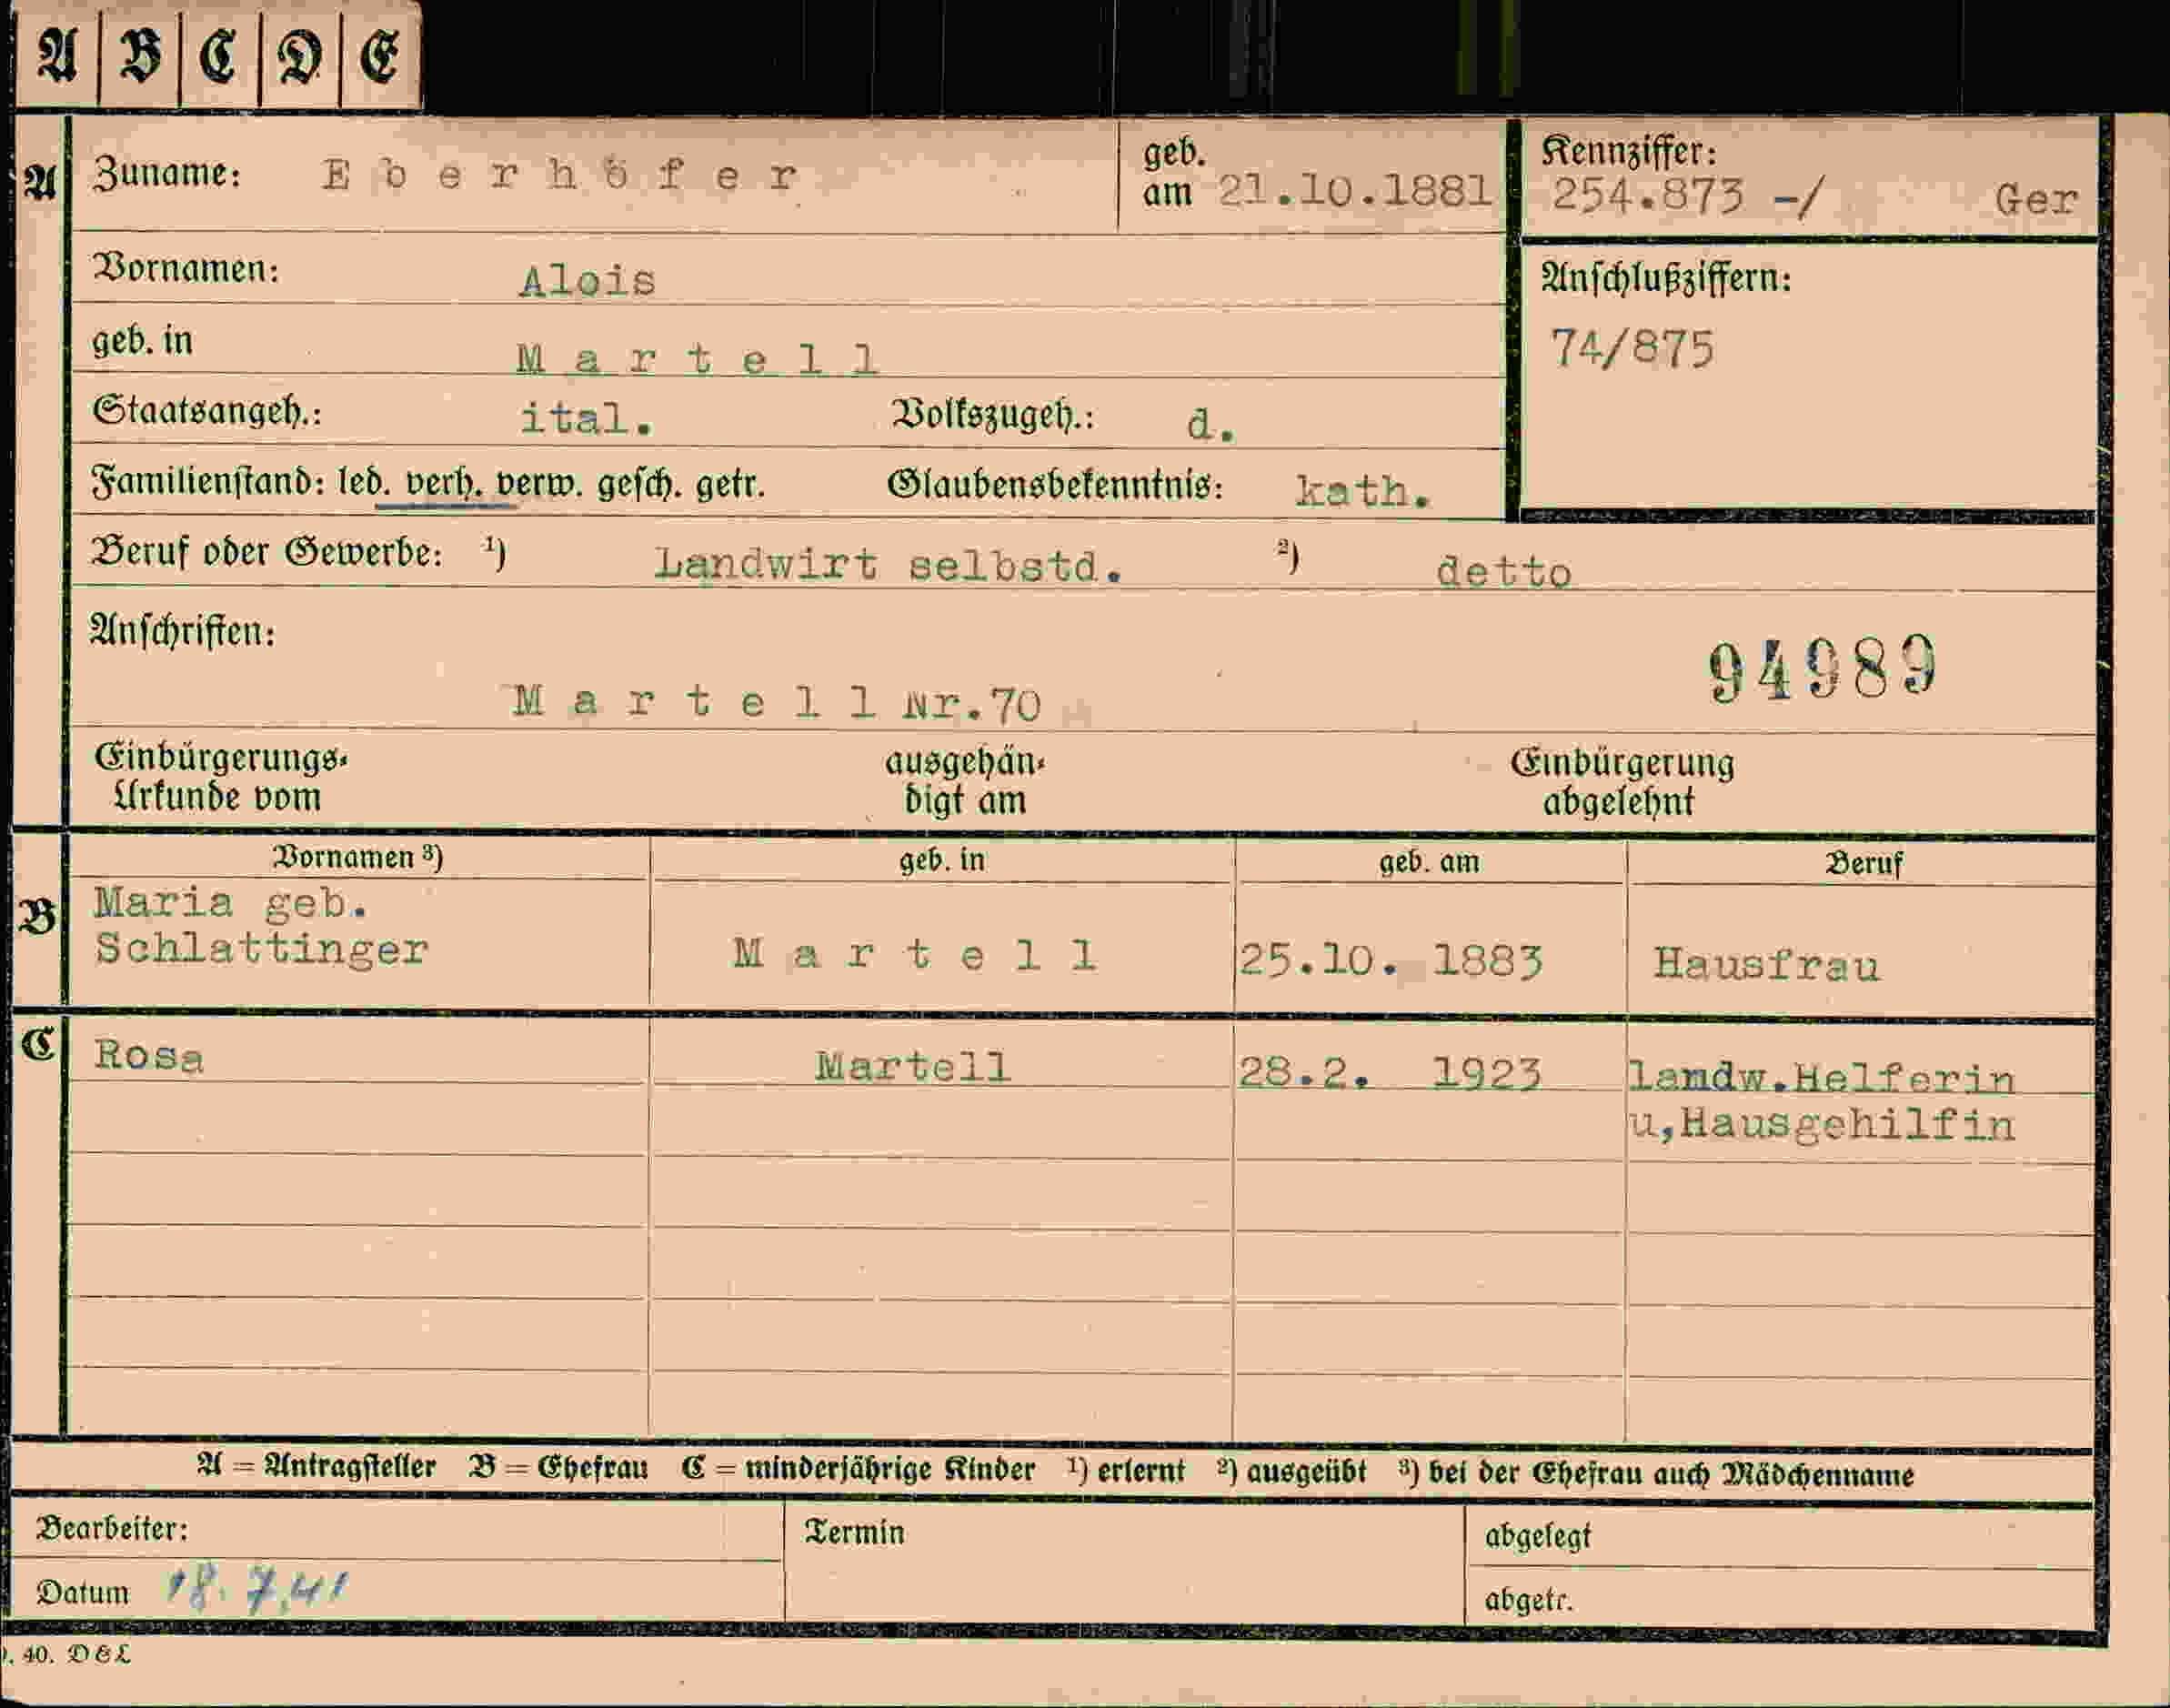 A B C D E
A Zuname: Eberhöfer geb. am 21.10.1881 Kennziffer: 254.873 -/ Ger
Vornamen: Alois Anschlußziffern:
geb. in Martell 74/875
Staatsangeh.: ital. Volkszugeh.: d.
Familienstand: led. verh. verw. gesch. getr. Glaubensbekenntnis: kath.
Beruf oder Gewerbe: ¹) Landwirt selbstd. ²) detto
Anschriften: 94989
Martell Nr.70
Einbürgerungs- ausgehän- Einbürgerung
Urkunde vom digt am abgelehnt
Vornamen ³) geb. in geb. am Beruf
B Maria geb.
Schlattinger Martell 25.10. 1883 Hausfrau
C Rosa Martell 28.2. 1923 landw.Helferin
u,Hausgehilfin
A = Antragsteller B = Ehefrau C = minderjährige Kinder ¹) erlernt ²) ausgeübt ³) bei der Ehefrau auch Mädchenname
Bearbeiter: Termin abgelegt
Datum 18.7.41 abgetr.
40. D&L